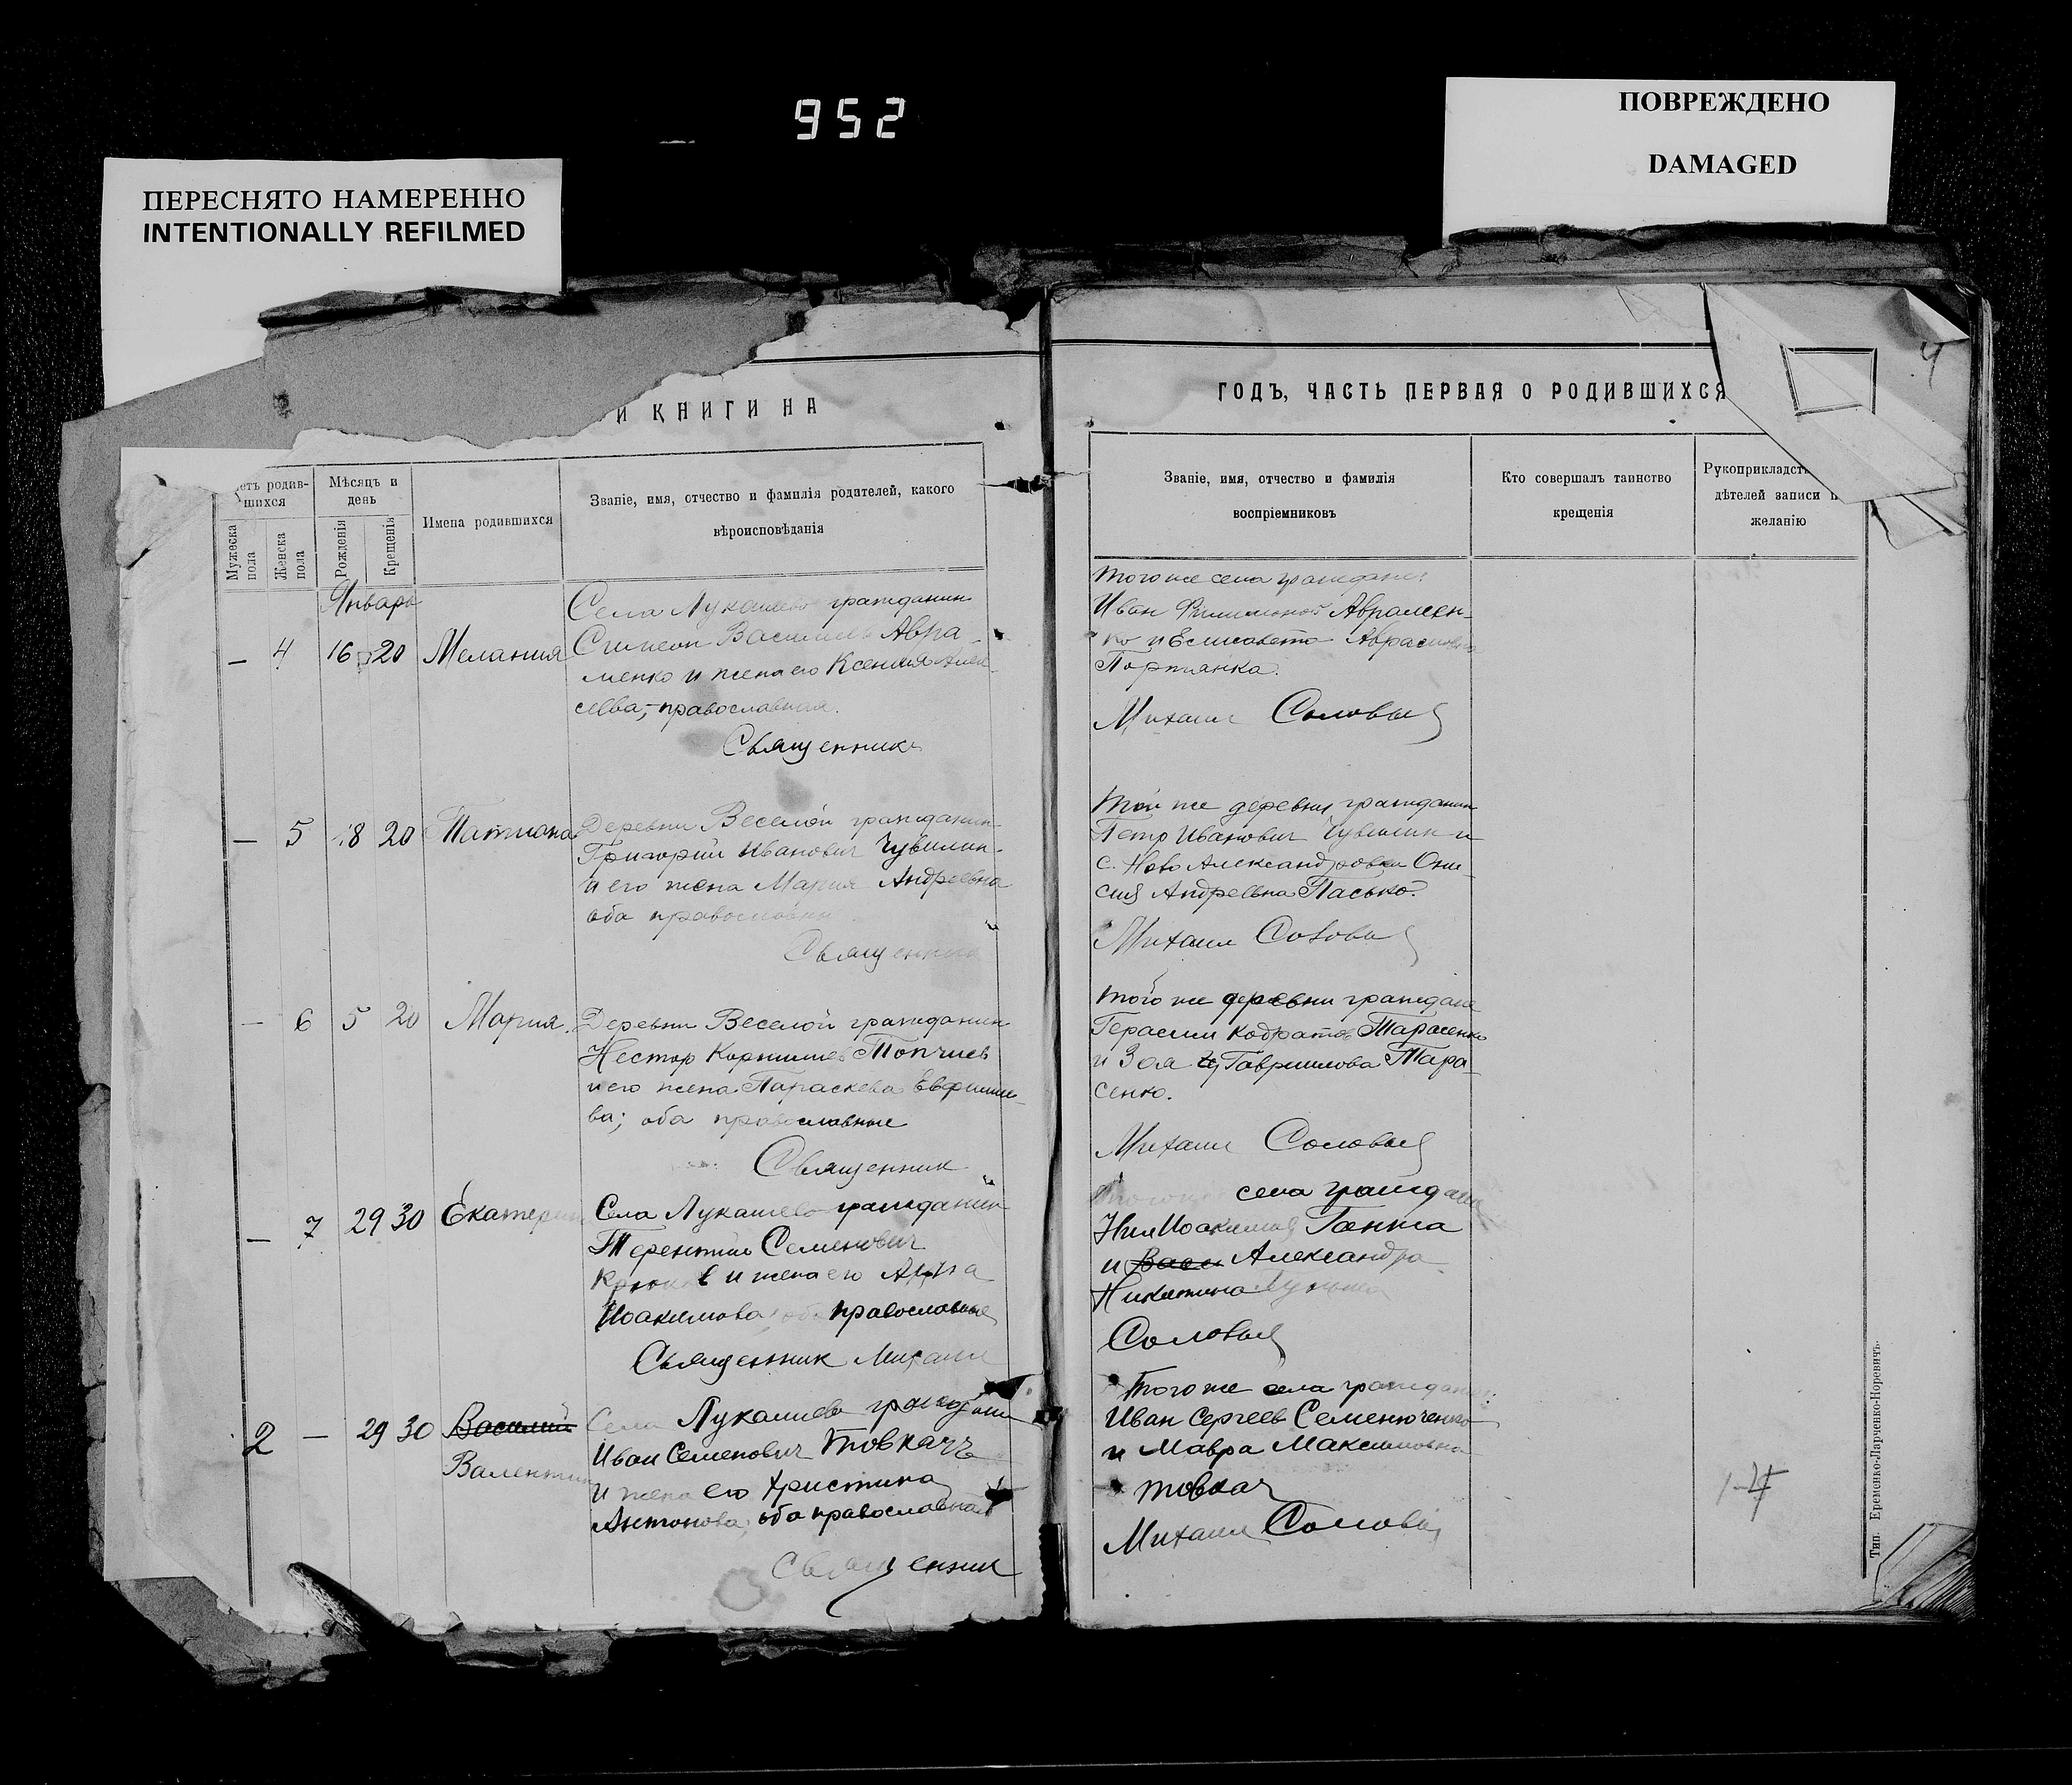 952
ПОВРЕЖДЕНО
DAMAGED
ПЕРЕСНЯТО НАМЕРЕННО
INTENTIONALLY REFILMED
Й КНИГИ НА
етъ родив-
шихся
Мужеска пола
Женска пола
Мѣсяцъ и
день
Рожденія
Крещенія
Имена родившихся
Званіе, имя, отчество и фамилія родителей, какого
вѣроисповѣданія
Январь
– 4 16 20 Мелания
Села Лукашево гражданин
Симеон Васильев Авра
менко и жена его Ксения Алек-
сеева, православная.
Священник
– 5 18 20 Татиана
Деревни Веселой гражданин
Григорий Иванович Чувилин
и его жена Мария Андреевна
оба православны
Священник
– 6 5 20 Мария.
Деревни Веселой гражданин
Нестор Корнилиев Топчиев
и его жена Параскева Евфимие-
ва; оба православные
Священник
– 7 29 30 Екатерин
Села Лукашево гражданин
Терентий Семенович
и жена его
Иоакимова; оба православные
Священник Михаил
2 – 29 30 Василий
Валентин
Села Лукашево граждани
Иван Семенович Товкачъ
и жена его Христина
Антонова, оба православная
Священник
ГОДЪ, ЧАСТЬ ПЕРВАЯ О РОДИВШИХСЯ
4
Званіе, имя, отчество и фамилія
воспріемниковъ
Кто совершалъ таинство
крещенія
Рукоприкладст
дѣтелей записи п
желанію
того же села граждане:
Иван Филимонов Авраменк-
ко и Елисавета
Портянка.
Михаил Соловьев
той же деревни гражданин
Петр Иванович Чувилин и
с. Ново Александровки Они-
сия Андреевна Пасько.
Михаил Соловьев
того же деревни граждане
Герасим Кодратов Тарасенко
и Зоя Гавриилова Тара-
сенко.
Михаил Соловьев
села граждане
Нил Иоакимов
и Васи Александра
Никитина
Соловьев
Того же села граждане:
Иван Сергеев Семенюченко
и Мавра Максимовна
товкач
Михаил Соловьев
Тип. Еременко-Ларченко-Норевичъ.